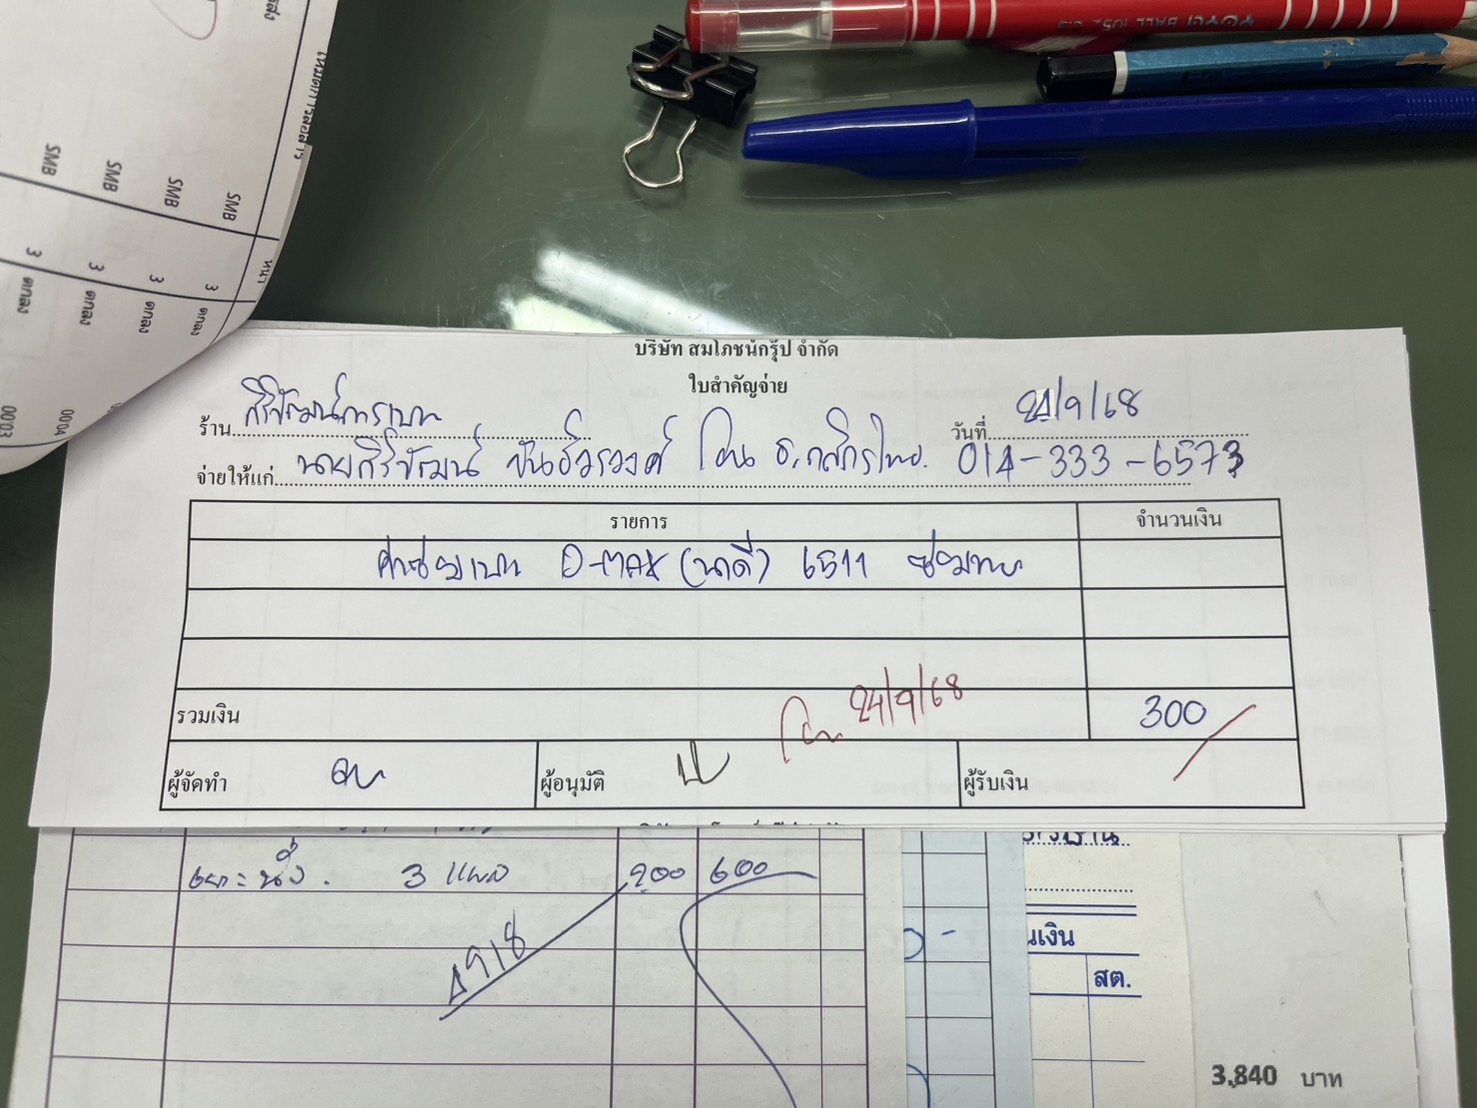 SMB SMB SMB SMB
3 3 3 3
ตกลง ตกลง ตกลง ตกลง
00'03 00'04
บริษัท สมโภชน์กรุ๊ป จำกัด
ใบสำคัญจ่าย
ร้าน ศิริชัยวัฒน์การเบาะ วันที่ 24/9/68
จ่ายให้แก่ โอน ธ.กสิกรไทย. 014-333-6573
รายการ จำนวนเงิน
ค่าซ่อมเบาะ D-MAX (นาดี) 6511
รวมเงิน โอน 24/9/68 300
ผู้จัดทำ ผู้อนุมัติ ผู้รับเงิน
เบาะนั่ง. 3 แผล 200 600
918
นเงิน
สต.
3,840 บาท